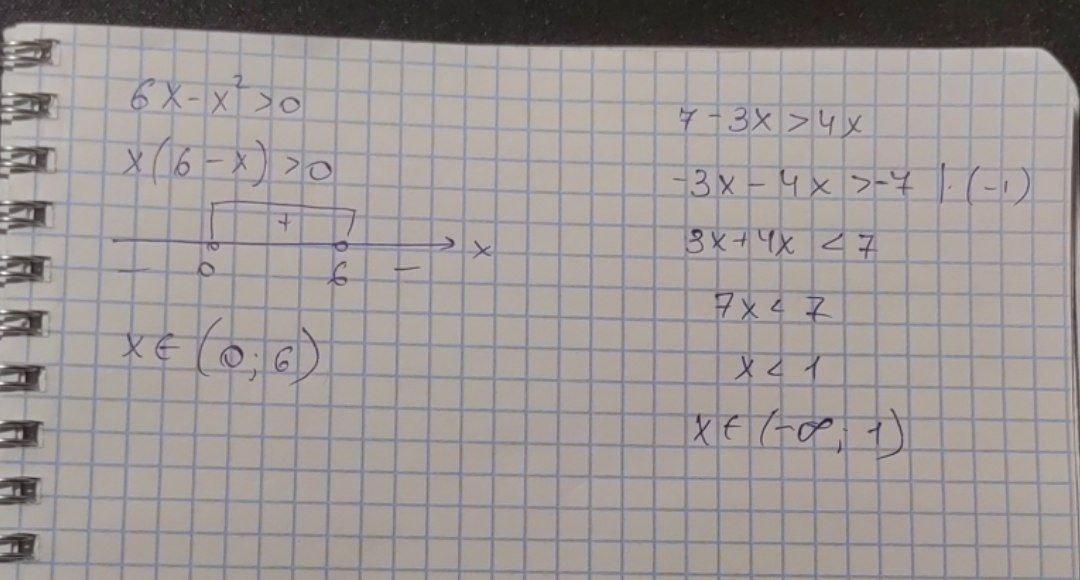 6x-x²>0
x(6-x)>0
+
x
- 0 6 -
x∈(0;6)
7-3x>4x
-3x-4x>-7 |·(-1)
3x+4x<7
7x<7
x<1
x∈(-∞;1)